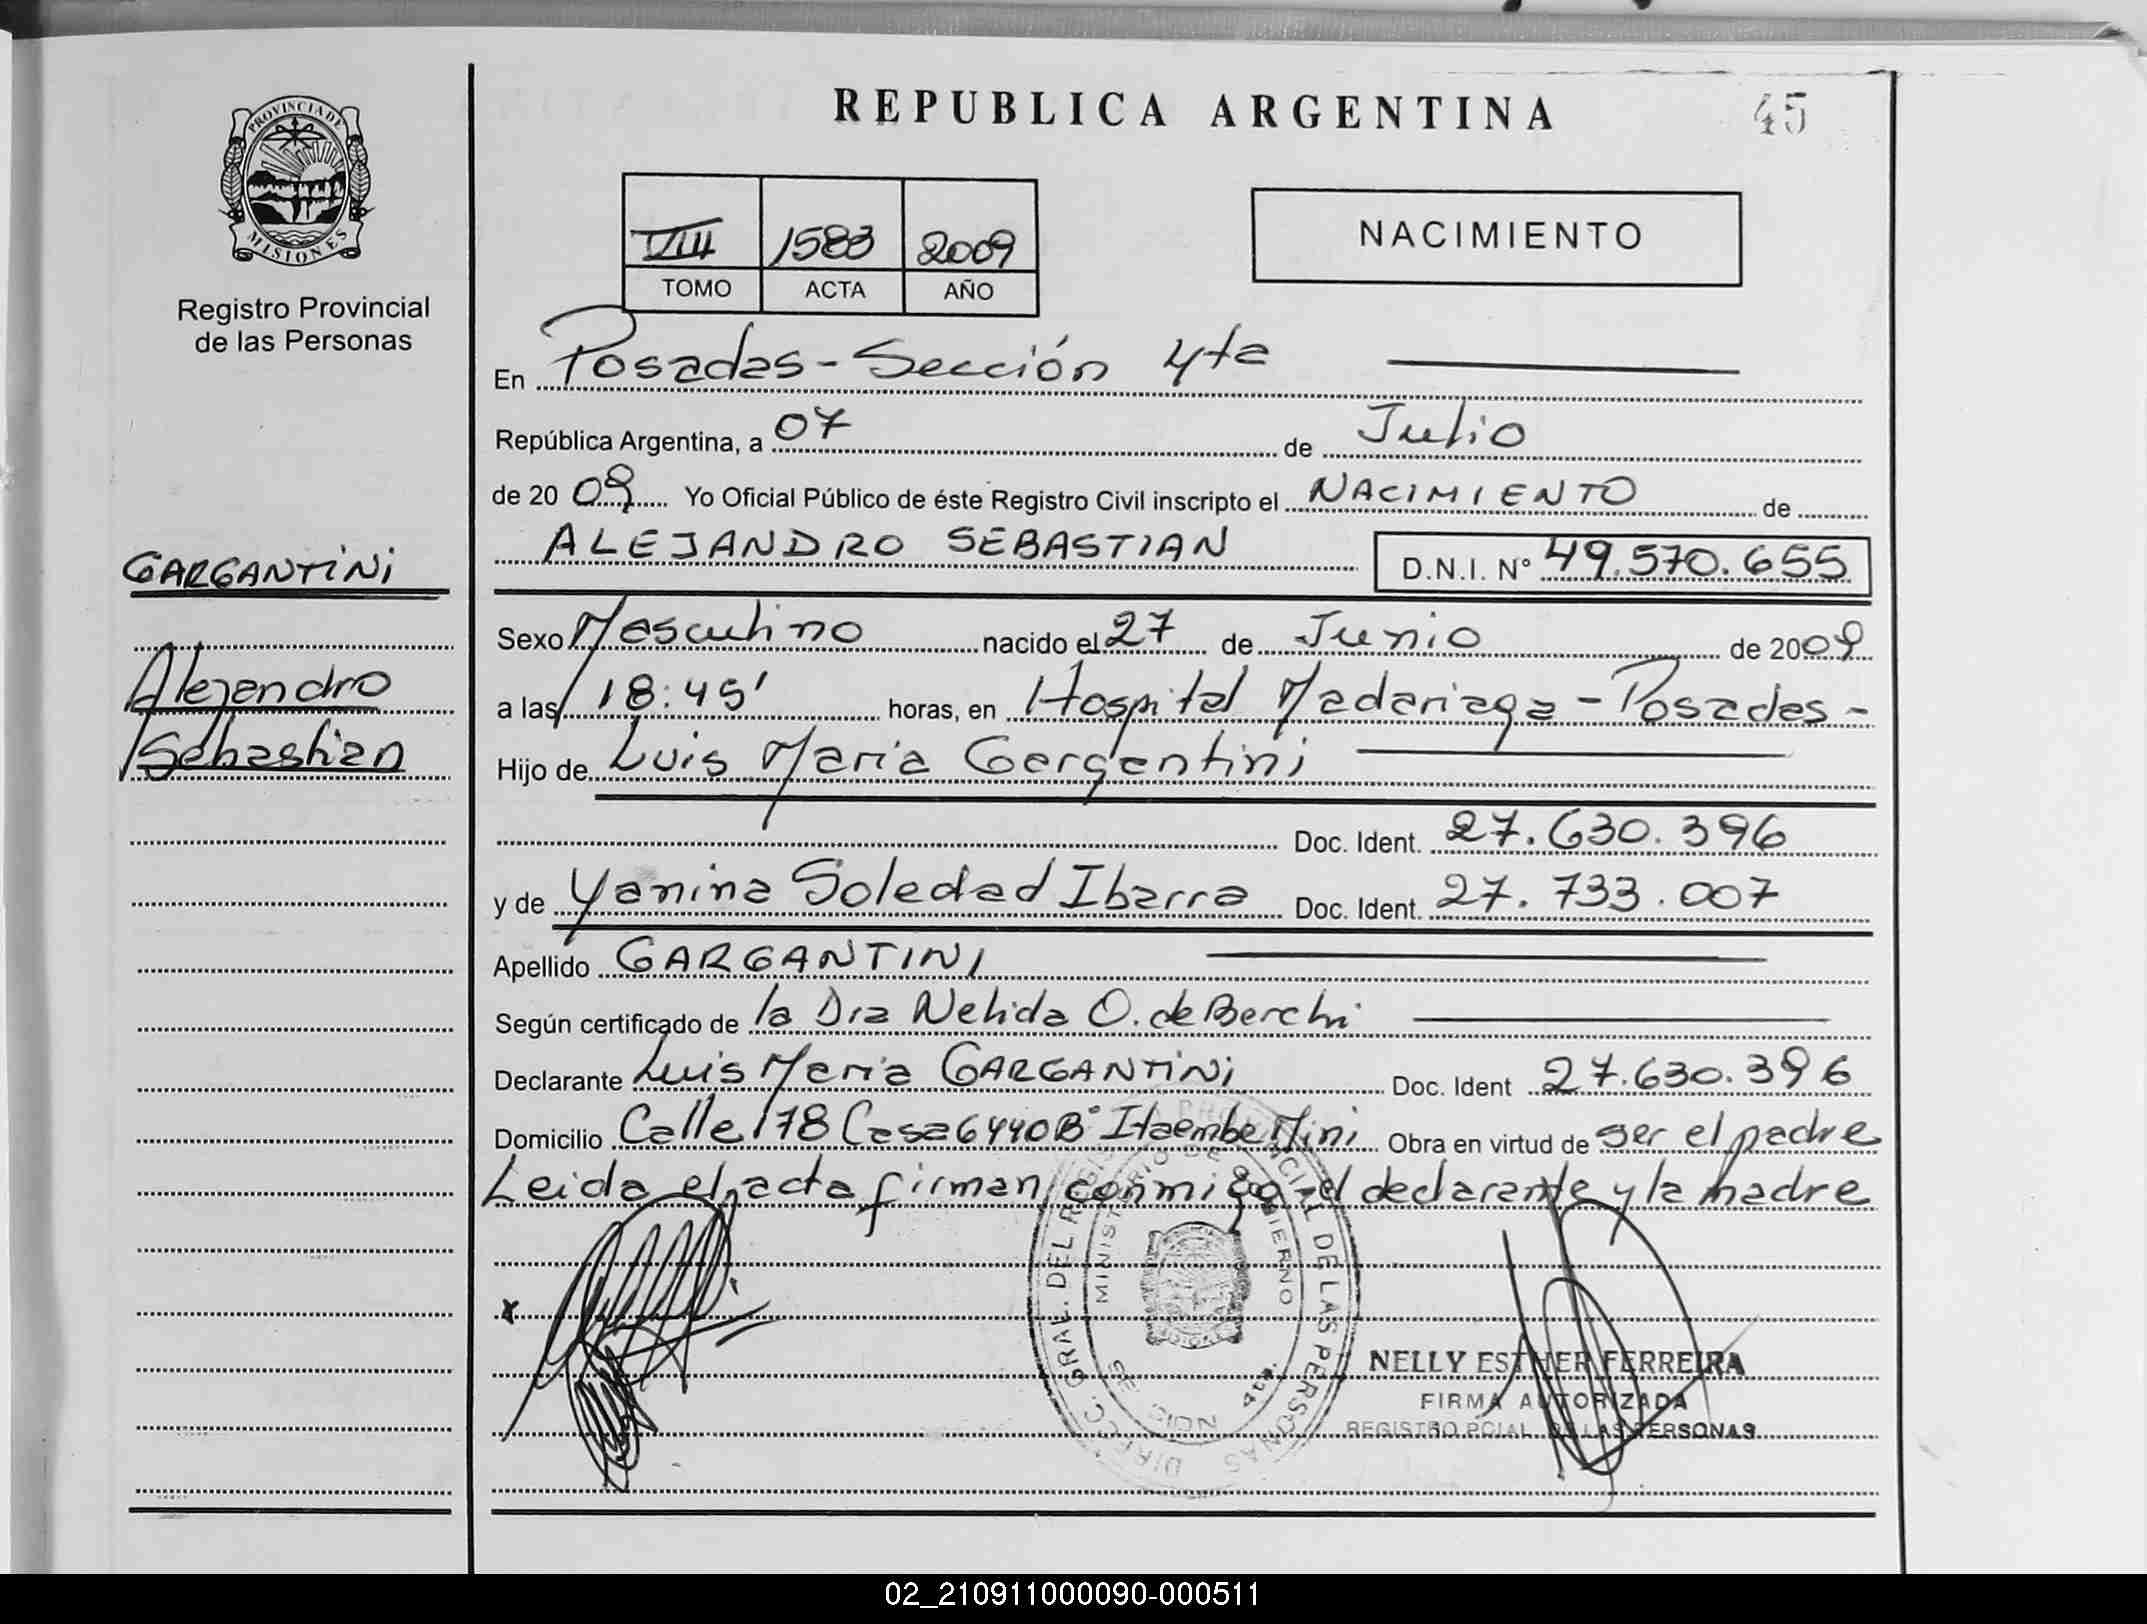 REPUBLICA ARGENTINA
45
PROVINCIA DE
MISIONES
Registro Provincial
de las Personas
VIII 1583 2009
TOMO ACTA AÑO
NACIMIENTO
En Posadas - Sección 4ta
República Argentina, a 07 de Julio
de 20 09 Yo Oficial Público de éste Registro Civil inscripto el NACIMIENTO de
ALEJANDRO SEBASTIAN D.N.I. N° 49.570.655
GARGANTINI
Alejandro
Sebastian
Sexo Masculino nacido el 27 de Junio de 2009
a las 18:45' horas, en Hospital Madariaga - Posadas -
Hijo de Luis Maria Gargantini
Doc. Ident. 27.630.396
y de Yanina Soledad Ibarra Doc. Ident. 27.733.007
Apellido GARGANTINI
Según certificado de la Dra Nelida O. de Berchi
Declarante Luis Maria GARGANTINI Doc. Ident 27.630.396
Domicilio Calle 178 Casa 6440 B° Itaembe Mini Obra en virtud de ser el padre
Leida el acta firman conmigo el declarante y la madre
x
DIRECC. GRAL. DEL REGISTRO PROVINCIAL DE LAS PERSONAS
MINISTERIO DE GOBIERNO
4ta.
NELLY ESTHER FERREIRA
FIRMA AUTORIZADA
REGISTRO PCIAL. DE LAS PERSONAS
02_210911000090-000511